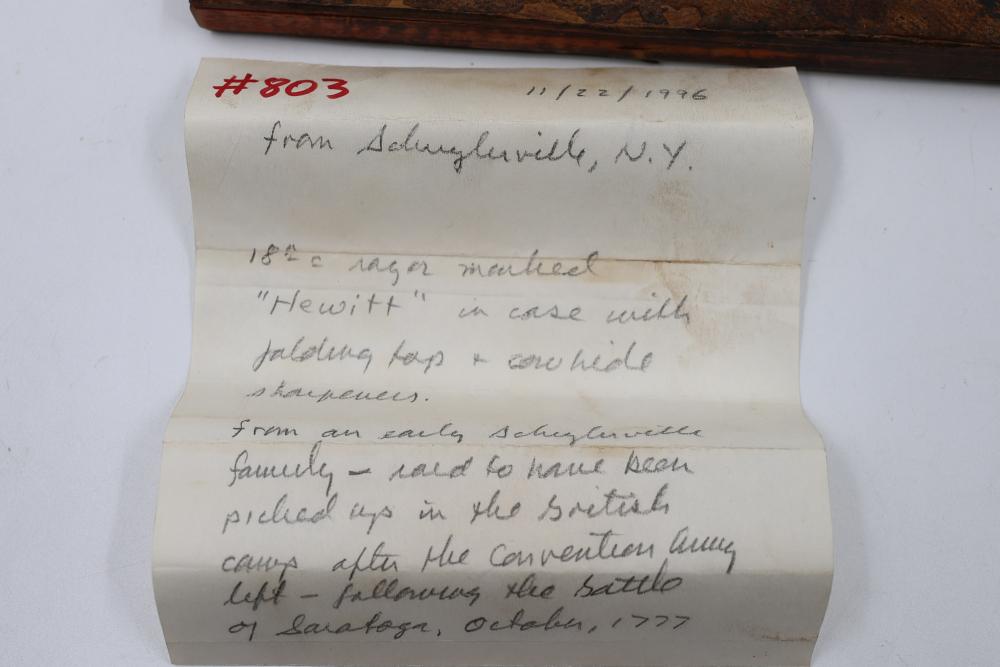 #803 11/22/1996
from Schuylerville, N.Y.
18th c razor marked
"Hewitt" in case with
folding top + cowhide
sharpeners.
From an early Schuylerville
family - said to have been
picked up in the British
camp after the Convention Army
left - following the Battle
of Saratoga, October, 1777